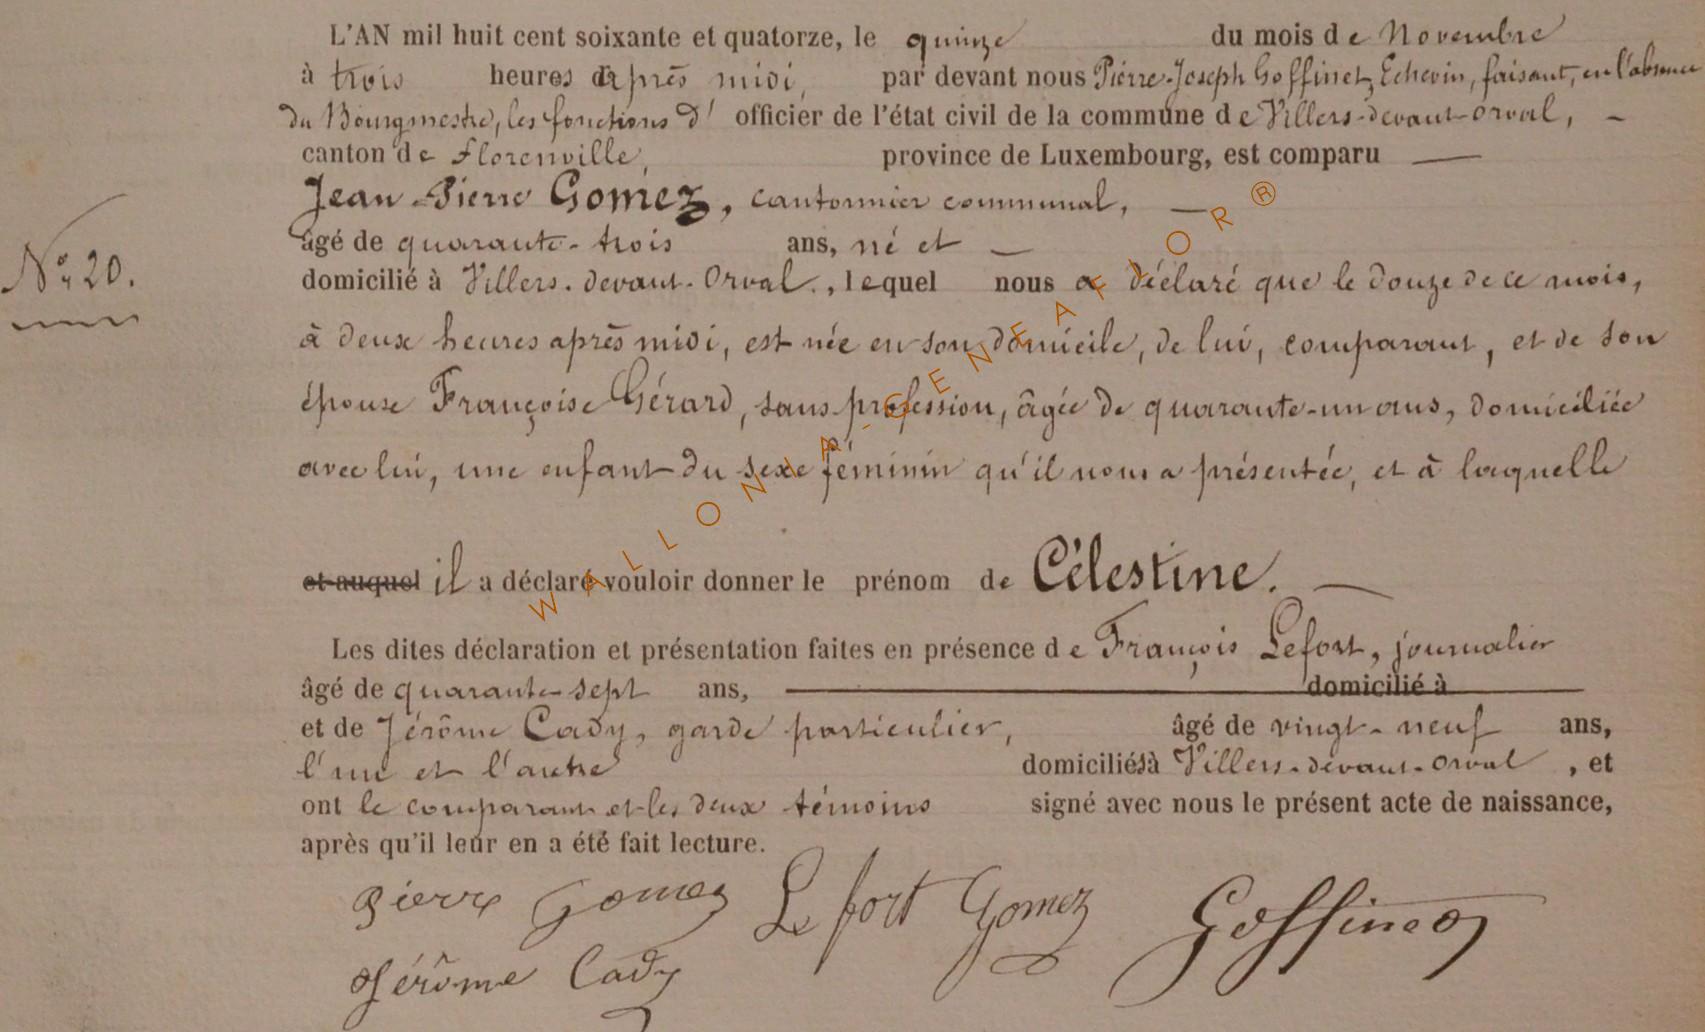 L'AN mil huit cent soixante et quatorze, le quinze du mois de Novembre
à trois heures après midi, par devant nous Pierre-Joseph Goffinet, Echevin, faisant, en l'absence
du Bourgmestre, les fonctions d' officier de l'état civil de la commune de Villers-devant-Orval, -
canton de Florenville, province de Luxembourg, est comparu —
Jean-Pierre Gomez, cantonnier communal, —
âgé de quarante-trois ans, né et —
domicilié à Villers-devant-Orval, lequel nous a déclaré que le douze de ce mois,
N° 20.
à deux heures après midi, est née en son domicile, de lui, comparant, et de son
épouse Françoise Gérard, sans profession, âgée de quarante-un ans, domiciliée
avec lui, une enfant du sexe féminin qu'il nous a présentée, et à laquelle
et auquel il a déclaré vouloir donner le prénom de Célestine. —
Les dites déclaration et présentation faites en présence de François Lefort, journalier
âgé de quarante-sept ans, — domicilié à —
et de Jérôme Cady, garde particulier, âgé de vingt-neuf ans,
l'un et l'autre domiciliés à Villers-devant-Orval, et
ont le comparant et les deux témoins signé avec nous le présent acte de naissance,
après qu'il leur en a été fait lecture.
Pierre Gomez Lefort Gomez Goffinet
Jérôme Cady
WALLONIA-GENEAFLOR®